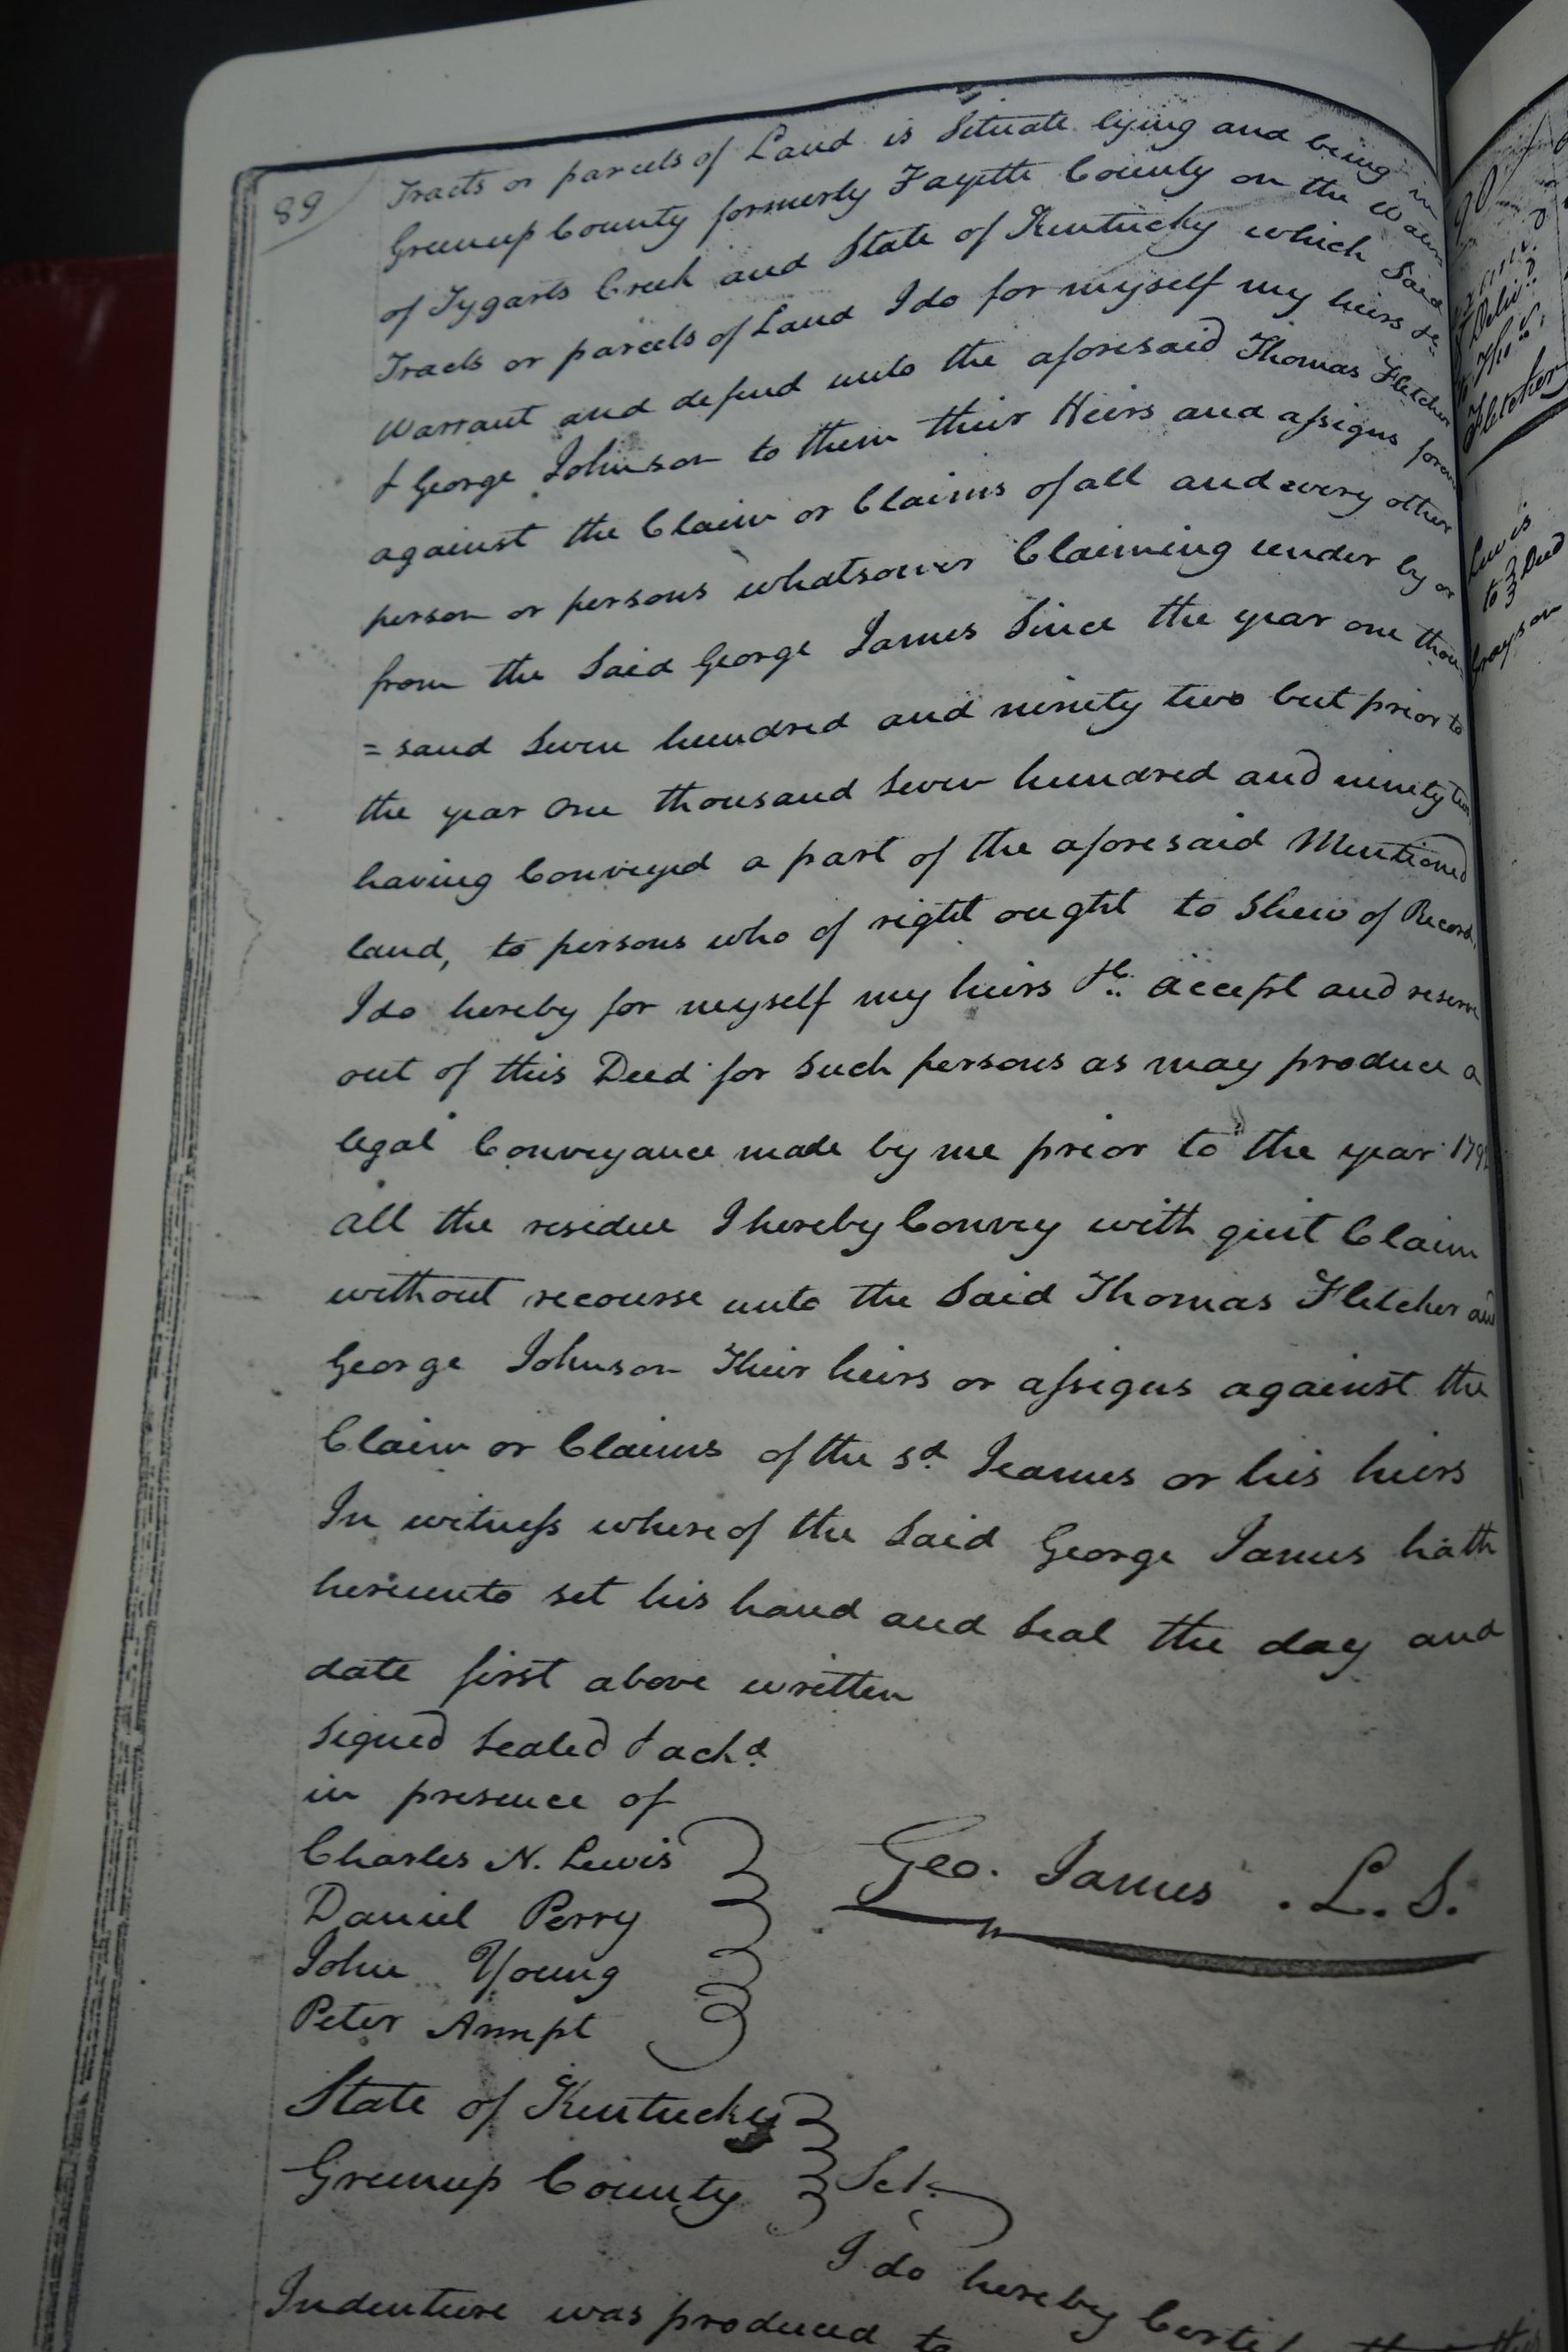 89
Tracts or parcels of Land is Situate lying and being in
Greenup County formerly Fayette County on the
of Tygarts Creek and State of Kentucky which Said
Tracts or parcels of Land I do for myself my heirs &c
warrant and defend unto the aforesaid Thomas Fletcher
& George Johnson to them their Heirs and assigns
against the Claim or Claims of all and every other
person or persons whatsoever Claiming under by or
from the Said George James Since the year one thou-
=sand Seven hundred and ninety two but prior to
the year one thousand Seven hundred and ninety two
having Conveyed a part of the aforesaid Mentioned
land, to persons who of right ought to Shew of Record,
I do hereby for myself my heirs &c. accept and reserve
out of this Deed for Such persons as may produce a
legal Conveyance made by me prior to the year
all the residue I hereby Convey with quit Claim
without recourse unto the Said Thomas Fletcher and
George Johnson Their heirs or assigns against the
Claim or Claims of the sd. Jeames or his heirs
In witness whereof the Said George James hath
hereunto set his hand and Seal the day and
date first above written
Signed Sealed & ackd.
in presence of
Charles N. Lewis
Daniel Perry
John Young
Peter Ampt
Geo. James . L. S.
State of Kentucky
Greenup County Sct.
I do hereby
Indenture was produced to
90
Deliv.d
Fletcher
Lewis
to Deed
Grayson